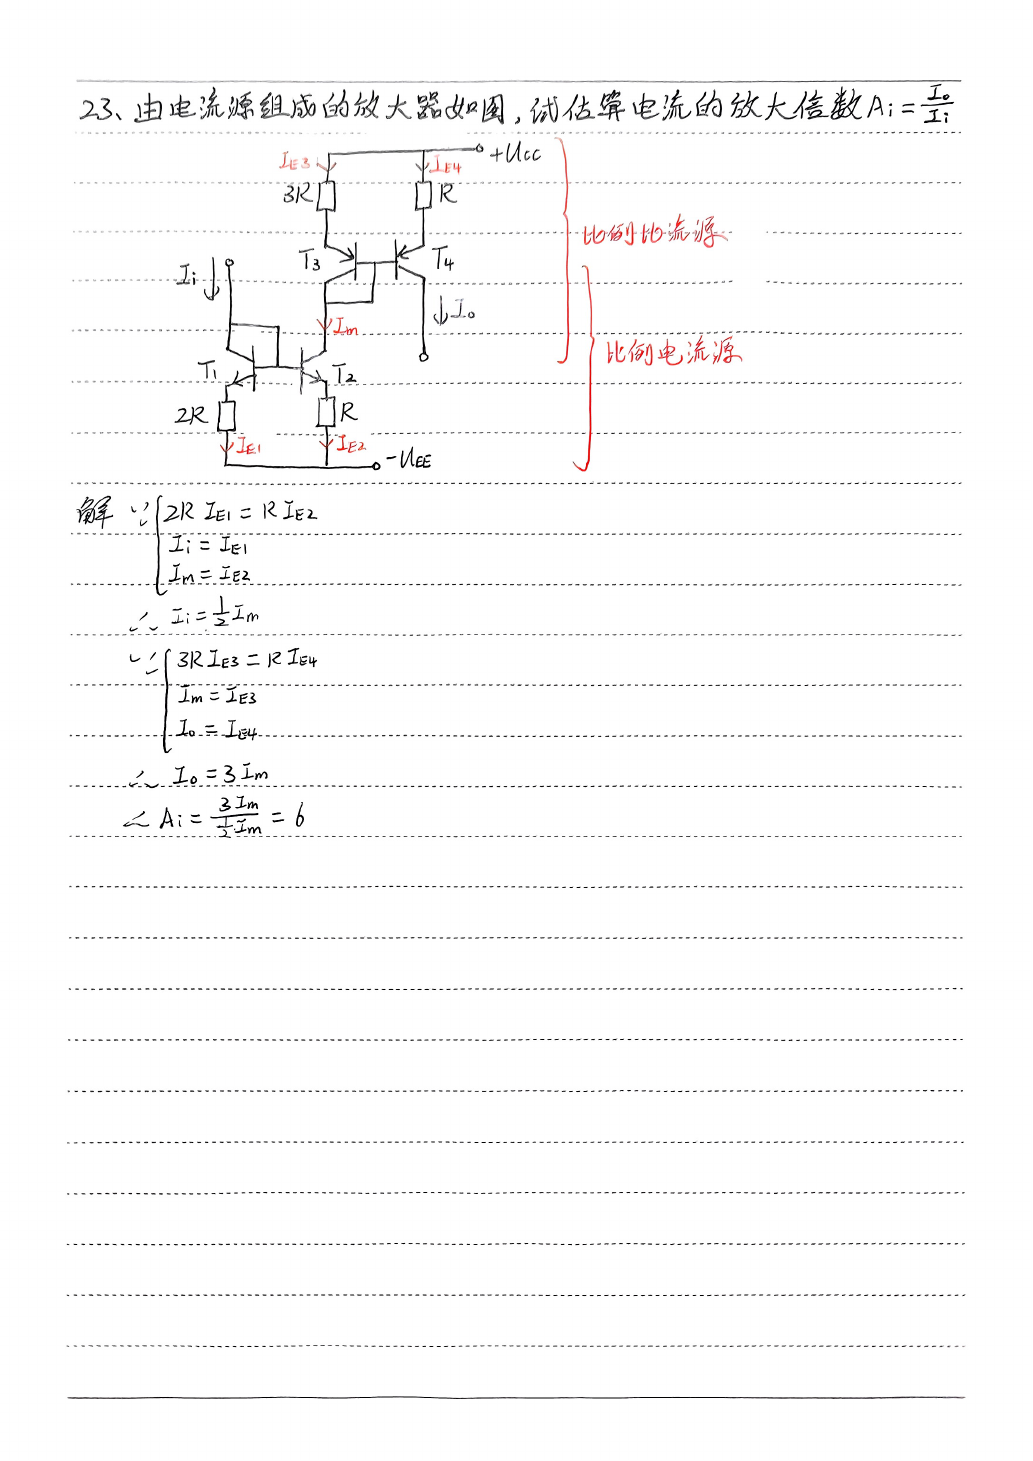 23、由电流源组成的放大器如图，试估算电流的放大倍数Ai=Io/Ii
IE3
IE4
+UCC
3R
R
T3
T4
比例比流源
Ii
Io
Im
比例电流源
T1
T2
2R
R
IE1
IE2
-UEE
解 ∵ { 2R IE1 = R IE2
Ii = IE1
Im = IE2
∴ Ii = 1/2 Im
∵ { 3R IE3 = R IE4
Im = IE3
Io = IE4
∴ Io = 3 Im
∠ Ai = 3Im / (1/2 Im) = 6